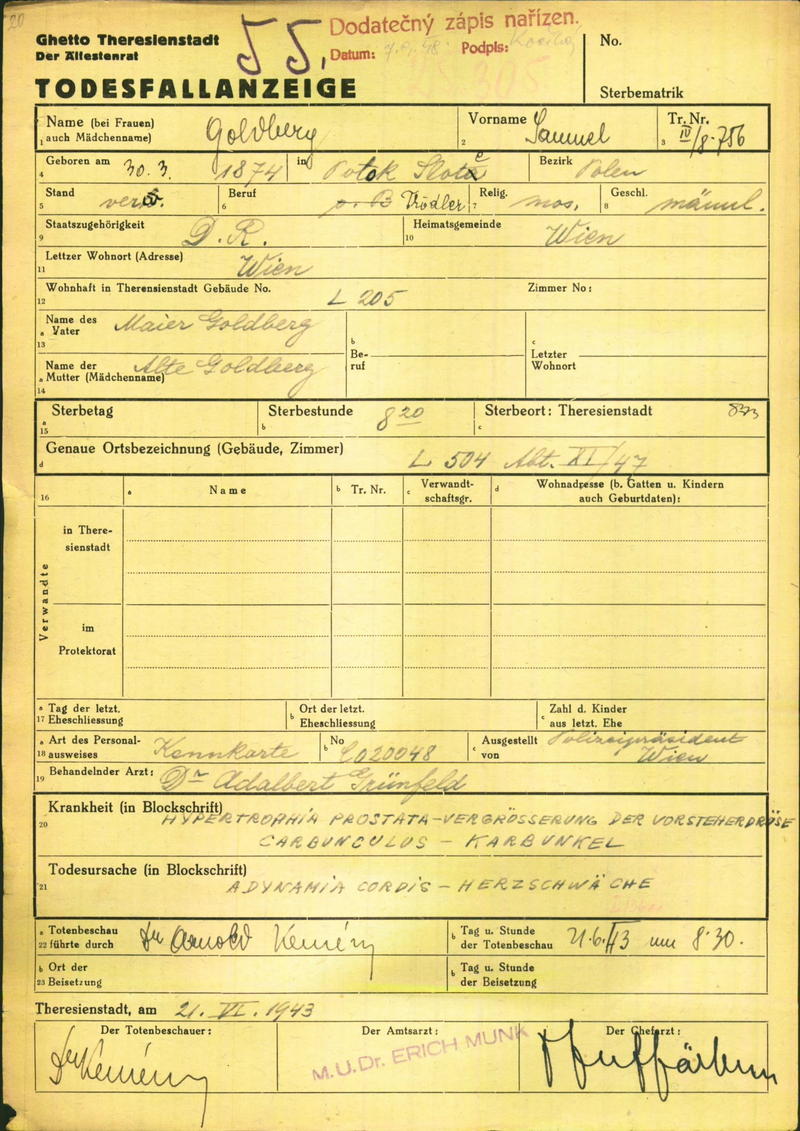 20
Ghetto Theresienstadt
Der Ältestenrat
TODESFALLANZEIGE
55,
Dodatečný zápis nařízen.
Datum: Podpis:
No.
Sterbematrik
Name (bei Frauen) Goldberg Vorname Samuel Tr. Nr.
1 auch Mädchenname) 2 3 IV/8-756
Geboren am 30.3. 1874 in Potok Zlota Bezirk Polen
4
Stand verw. Beruf Trödler Relig. mos. Geschl. männl.
5 6 7 8
Staatszugehörigkeit D. R. Heimatsgemeinde Wien
9 10
Lettzer Wohnort (Adresse) Wien
11
Wohnhaft in Therensienstadt Gebäude No. L 205 Zimmer No:
12
Name des Maier Goldberg
a Vater b c
13 Be- Letzter
Name der Alte Goldberg ruf Wohnort
a Mutter (Mädchenname)
14
Sterbetag Sterbestunde 8 20 Sterbeort: Theresienstadt
a 15 b c
Genaue Ortsbezeichnung (Gebäude, Zimmer) L 504 Abt. XI/47
d
16 a Name b Tr. Nr. c Verwandt-schaftsgr. d Wohnadresse (b. Gatten u. Kindern
auch Geburtdaten):
Verwandte
in There-
sienstadt
im
Protektorat
a Tag der letzt. b Ort der letzt. c Zahl d. Kinder
17 Eheschliessung Eheschliessung aus letzt. Ehe
a Art des Personal- Kennkarte b No 020048 c Ausgestellt Polizeipräsident
18 ausweises von Wien
Behandelnder Arzt: Dr Adalbert Grünfeld
19
Krankheit (in Blockschrift)
20 HYPERTROPHIA PROSTATA-VERGRÖSSERUNG DER VORSTEHERDRÜSE
CARBUNCULUS - KARBUNKEL
Todesursache (in Blockschrift)
21 ADYNAMIA CORDIS - HERZSCHWÄCHE
a Totenbeschau Dr Arnold Kemény b Tag u. Stunde 21.6.43 um 8.30.
22 führte durch der Totenbeschau
b Ort der b Tag u. Stunde
23 Beisetzung der Beisetzung
Theresienstadt, am 21. VI. 1943
Der Totenbeschauer: Der Amtsarzt: Der Chefarzt:
Dr Kemény M.U.Dr. ERICH MUNK